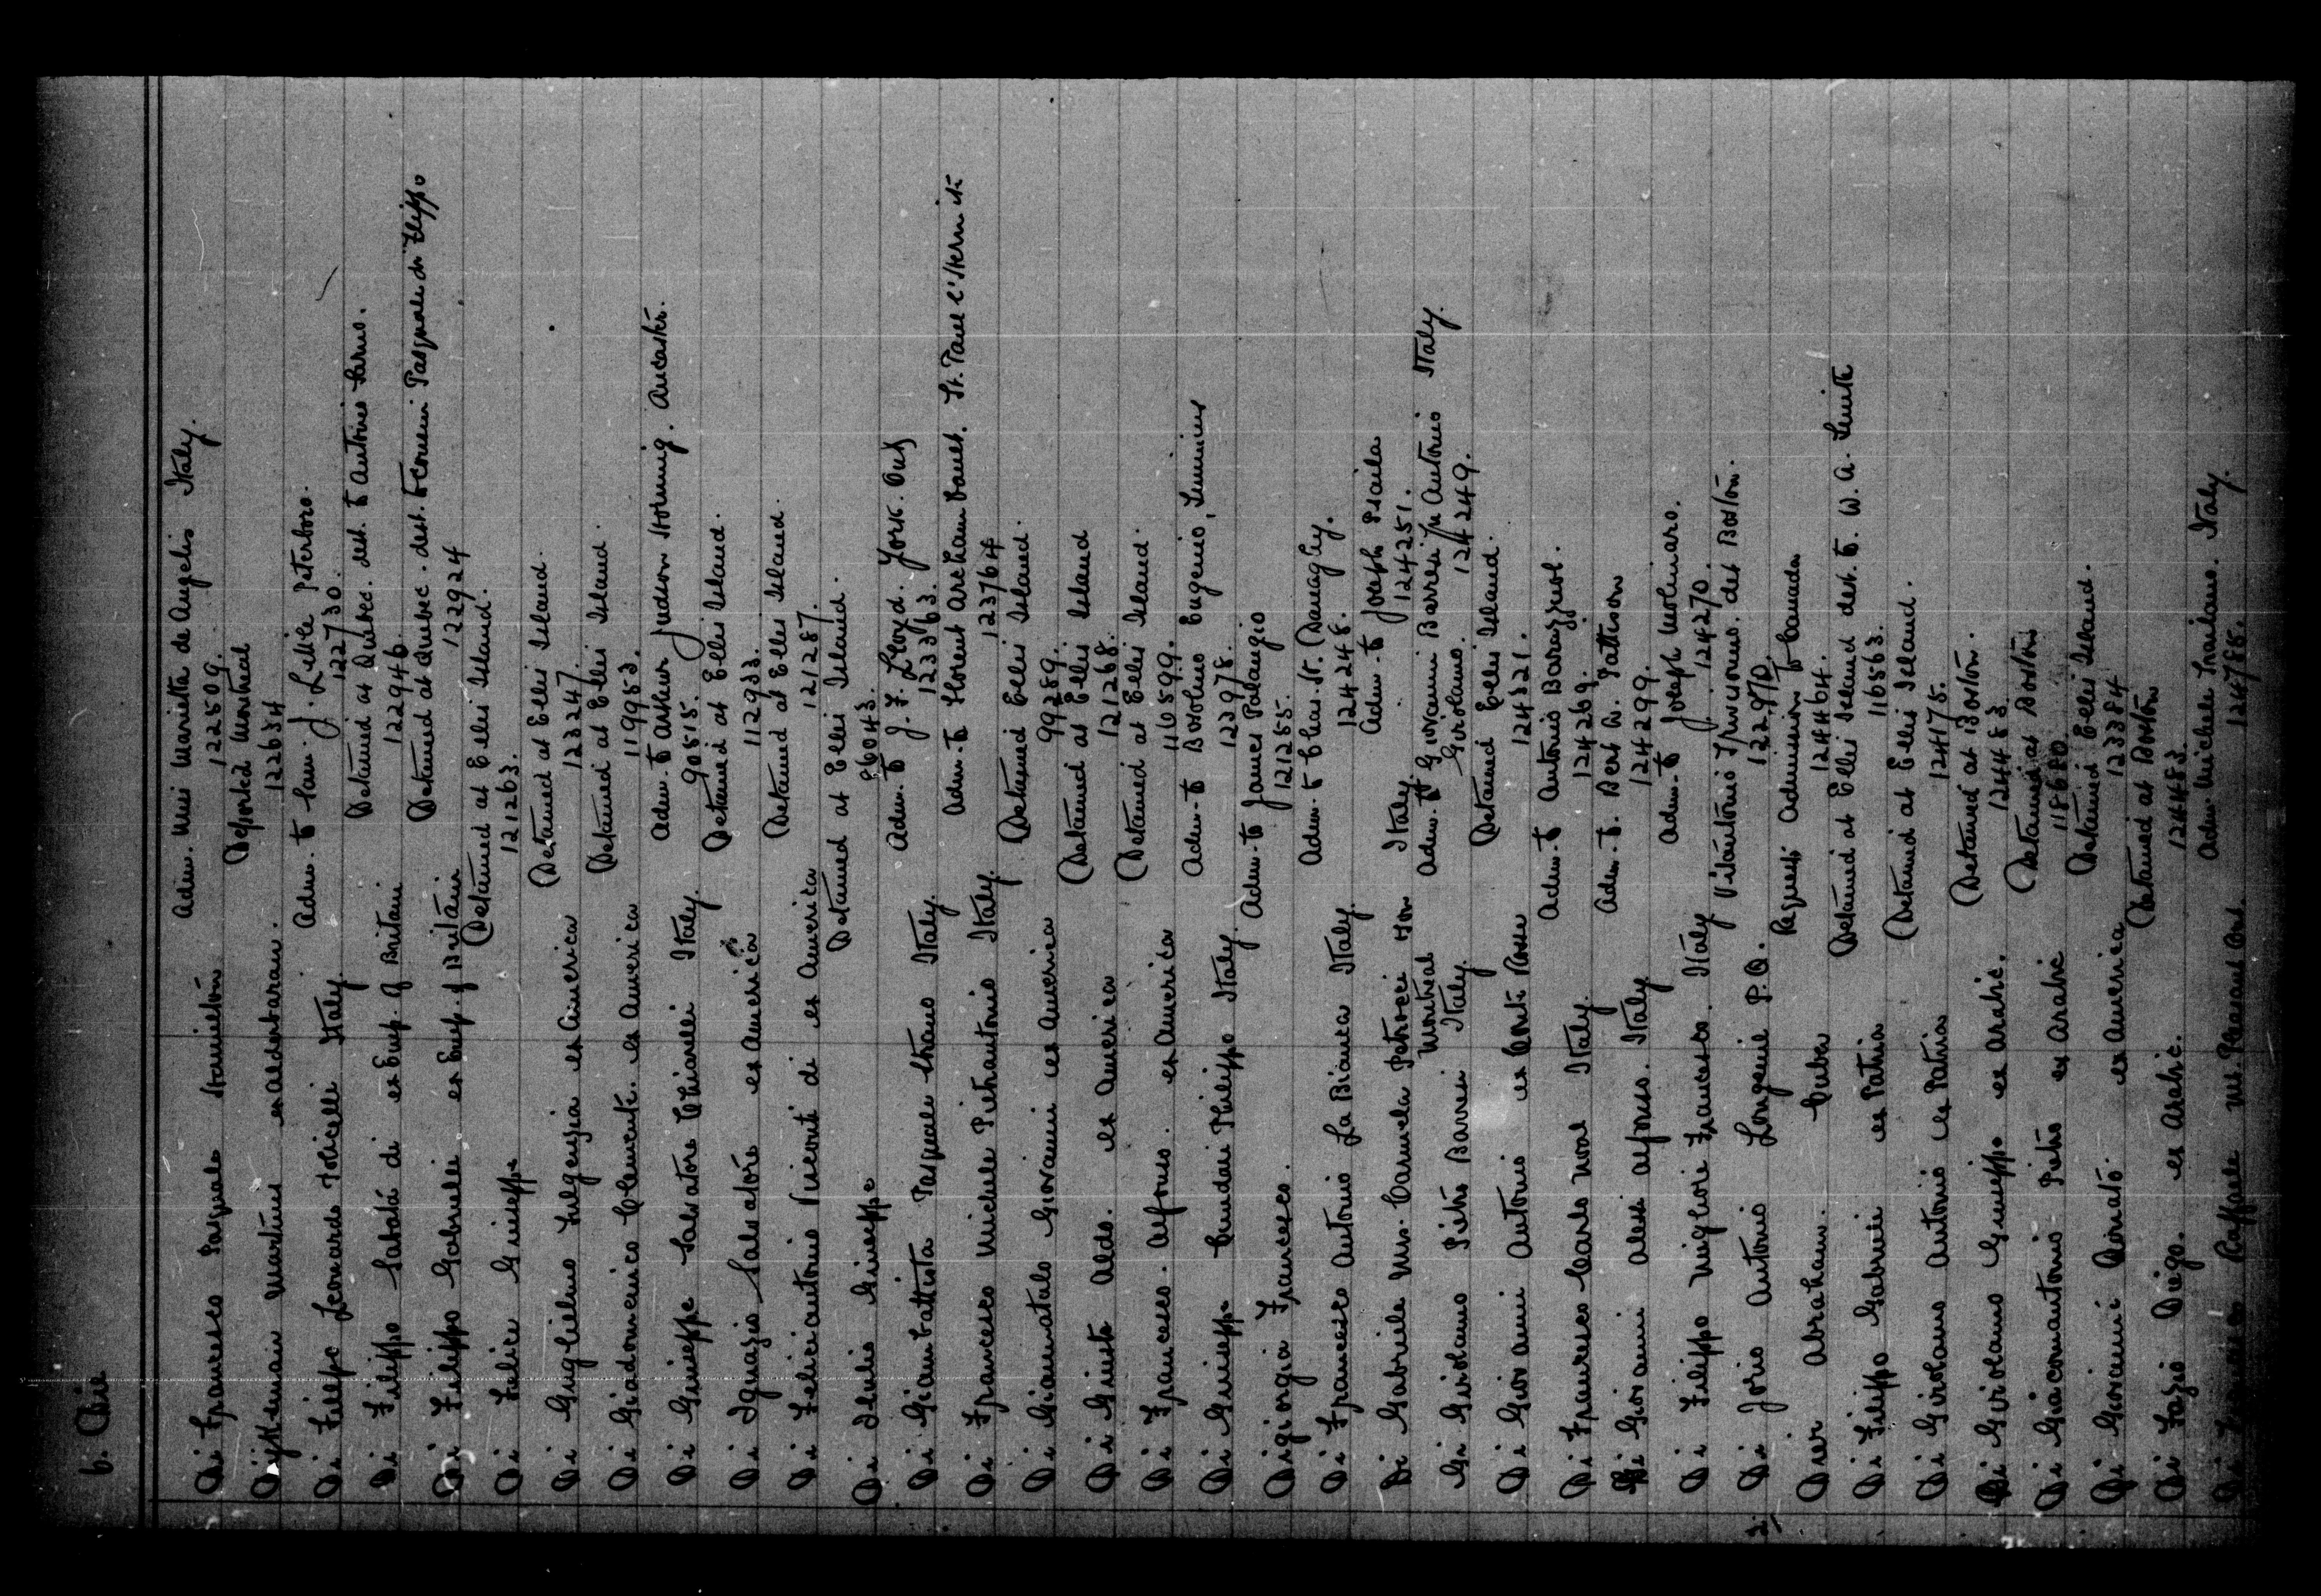 6. Di
Di Francesco Pasquale Hamilton Adm. Mrs Marietta de Angelis Italy.
122509.
Dijkeman Martinus ex Aldebaran. Deported Montreal
122634
Di Filipo Leonardo Italy. Adm. to Sam. J. Peterboro.
122730.
Di Filippo Sabata di ex Emp. of Britain Detained at Quebec. dest. to Antonio Sarno.
122946.
Di Filippo Gabriele ex Emp. of Britain Detained at Quebec. dest. Pasquale di Filippo
122924
Di Felice Giuseppe Detained at Ellis Island.
121263.
Di Guglielmo Fulgenzia ex America Detained at Ellis Island.
123247.
Di Giadomenico Clemente. ex America Detained at Ellis Island.
119953.
Di Giuseppe Salvatore Chiarelli Italy. Adm. to Arthur Judson. Ancaster.
90515.
Di Ignazio Salvatore ex America Detained at Ellis Island.
112933.
Di Feliciantonio Viconti di ex America Detained at Ellis Island.
121287.
Di Iulio Giuseppe Detained at Ellis Island.
86043.
Di Giambattista Pasquale Italy. Adm. to J. F. Lloyd. York. Ont
123363.
Di Francesco Michele Pietrantonio Italy. Adm. to Florent Archambault. St. Paul l'Hermite
123764
Di Giannatalo Giovanni ex America Detained Ellis Island.
99289.
Di Giusto Aldo. ex America Detained at Ellis Island
121268.
Di Francesco. Alfonso. ex America Detained at Ellis Island.
110599.
Di Giuseppe Philippo Italy. Adm. to Eugenio,
122978.
Digiorgia Francesco. Adm. to James Palangio
121255.
Di Francesco Antonio La Bianca Italy. Adm. to Chas. St.
124248.
Di Gabriele Mrs. Carmela Petrocci Montreal Italy Adm. to Joseph
124251.
Di Girolamo Pietro Italy. Adm. of Giovanni Antonio Italy.
Girolamo. 124249.
Di Giovanni Antonio ex Conte Rosso Detained Ellis Island.
124321.
Di Francesco Carlo Italy. Adm. to Antonio
124269.
Di Giovanni Alfonso. Italy Adm. to. Bert W. Pattison
124299.
Di Filippo Francesco. Italy Adm. to Joseph Molinaro.
124270.
Di Jorio Antonio Longueuil P.Q. dest Boston.
122970.
Dier Abraham. Cuba Request Admission to Canada
124464.
Di Filippo Gabriele ex Patria Detained at Ellis Island dest. to. W. A. Smith
116563.
Di Girolamo Antonio ex Patria Detained at Ellis Island.
124175.
Di Girolamo Giuseppe ex Arabic. Detained at Boston.
124483.
Di Giacomantonio Pietro ex Arabic Detained at Boston
118680.
Di Giovanni Donato. ex America Detained Ellis Island.
123384
Di Fazio Diego. ex Arabic. Detained at Boston
124483.
Di Raffaele Mt. Pleasant Ont. Adm. Michele Italy.
124788.